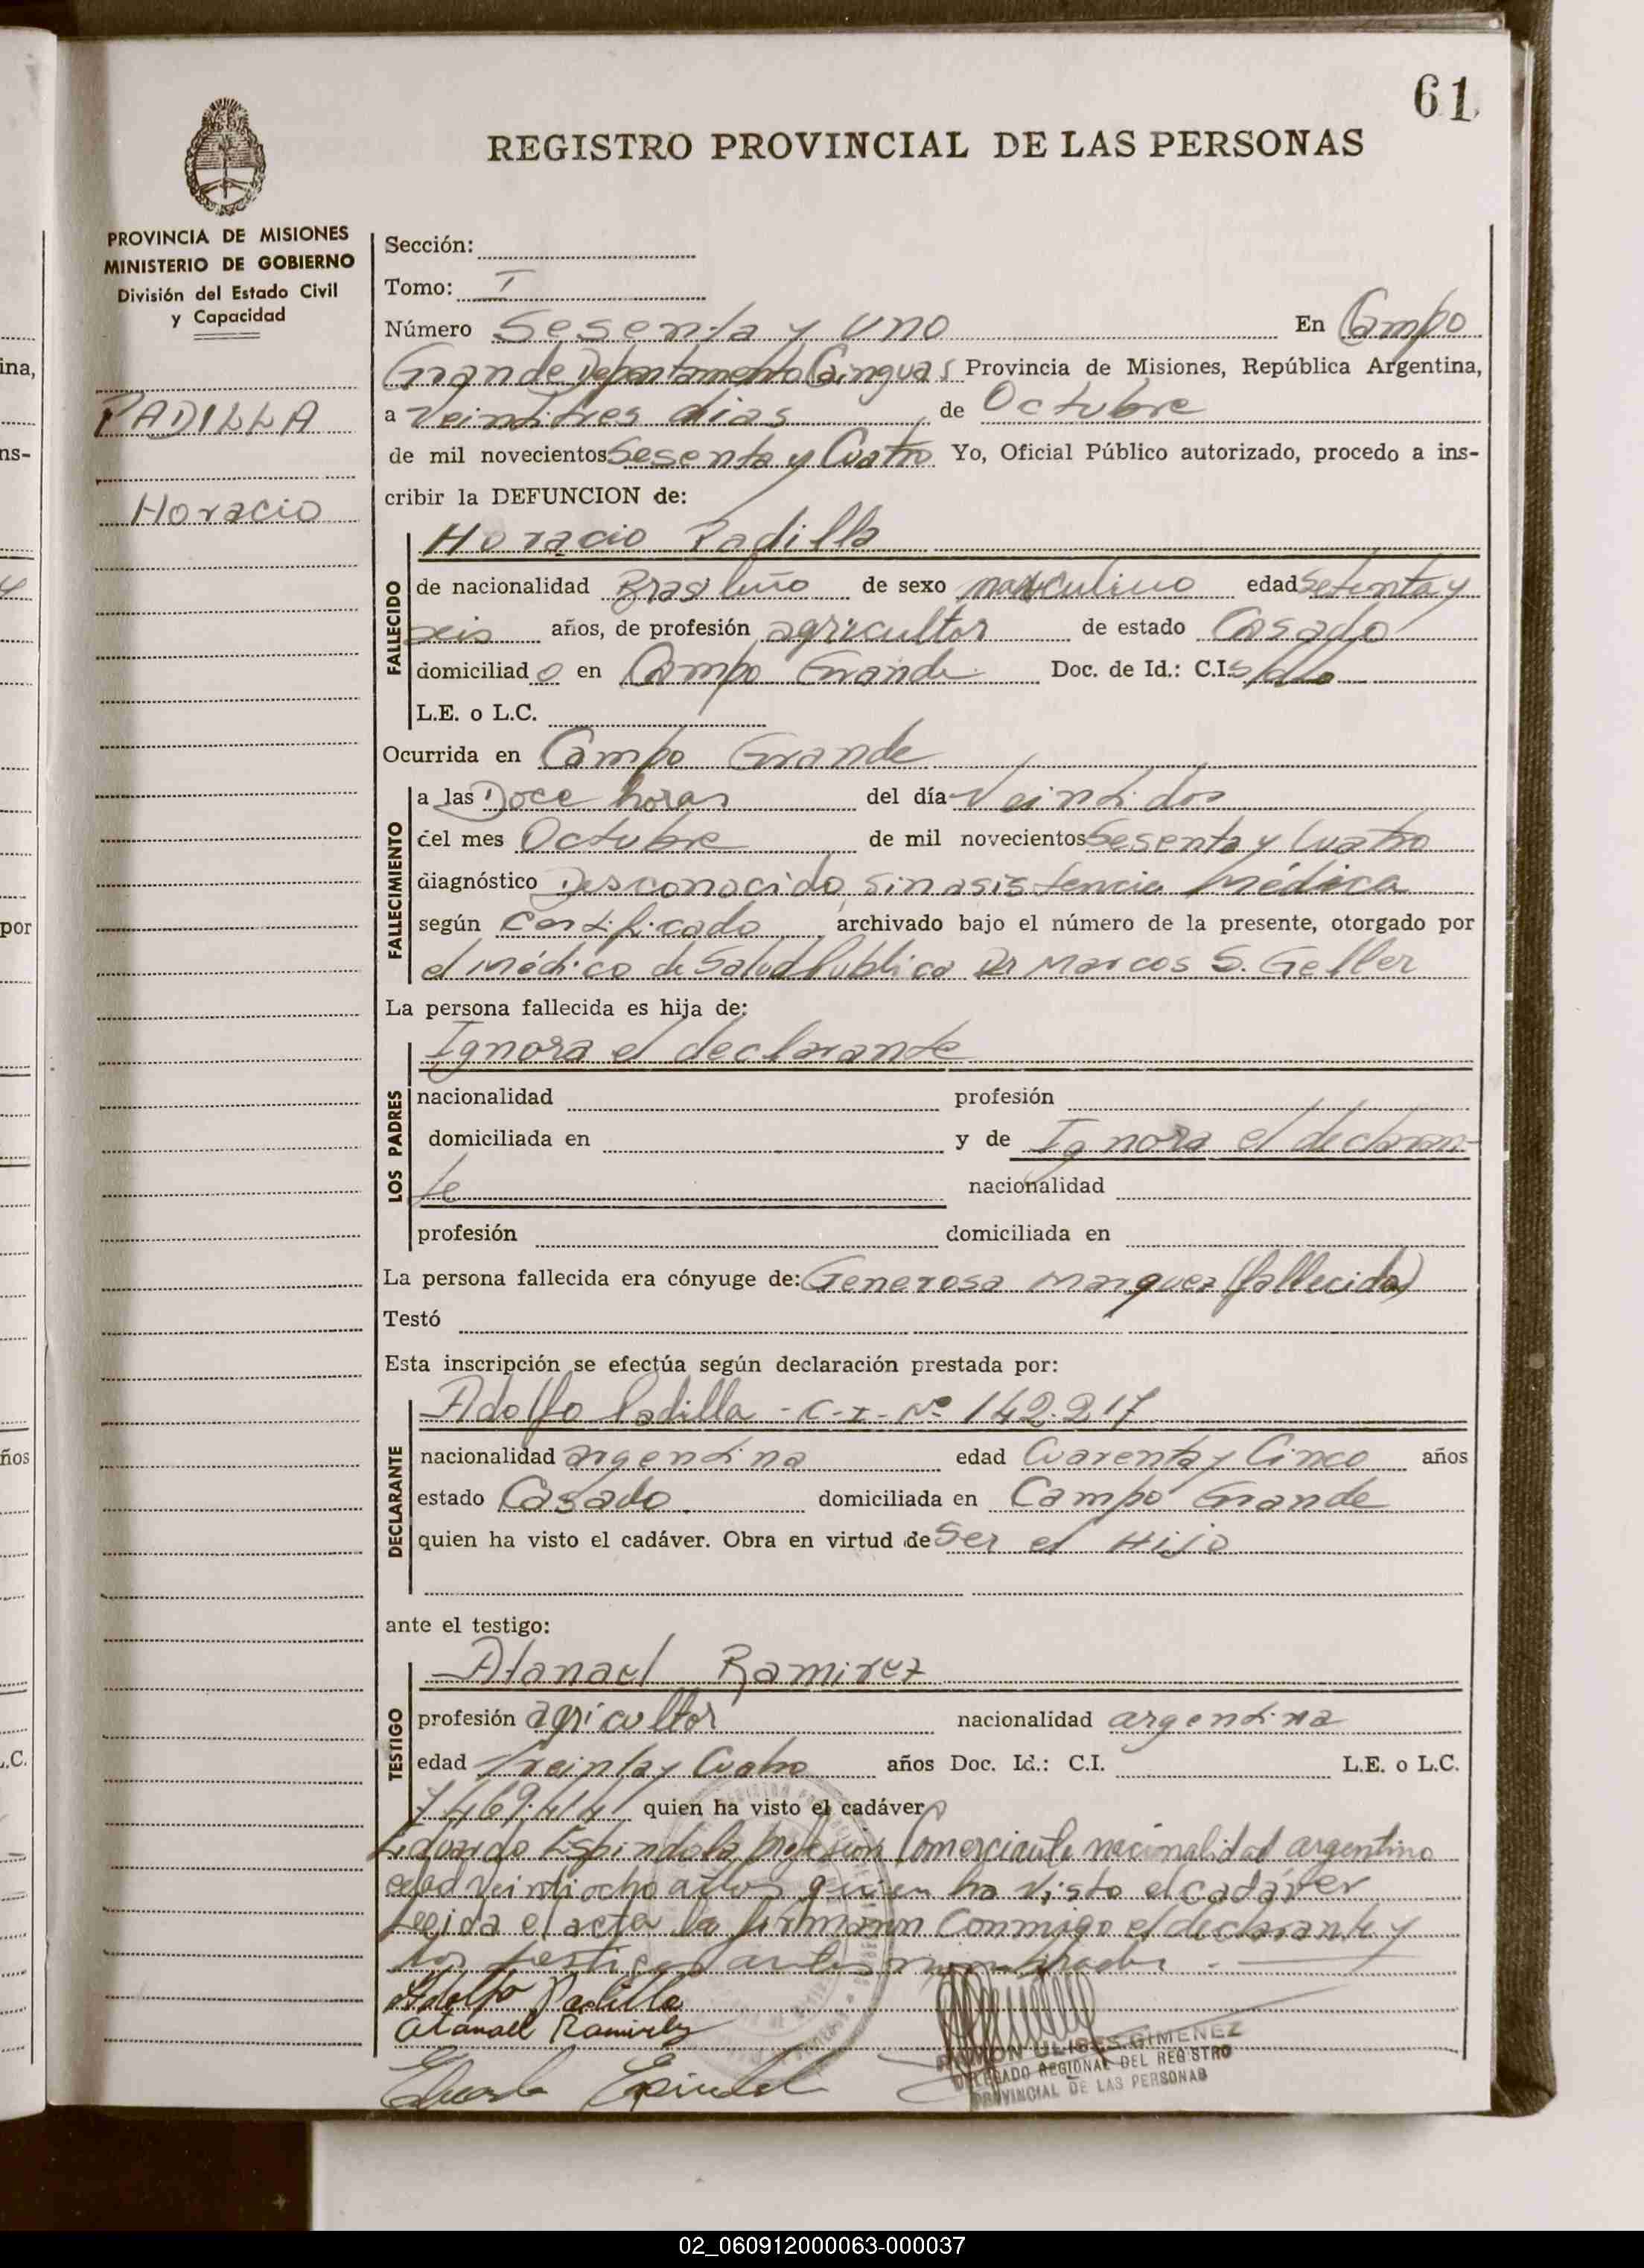 61
REGISTRO PROVINCIAL DE LAS PERSONAS
PROVINCIA DE MISIONES
MINISTERIO DE GOBIERNO
División del Estado Civil
y Capacidad
PADILLA
Horacio
Sección:
Tomo: I
Número Sesenta y uno En Campo
Grande Departamento Cainguas Provincia de Misiones, República Argentina,
a Veintitres dias de Octubre
de mil novecientos Sesenta y Cuatro Yo, Oficial Público autorizado, procedo a ins-
cribir la DEFUNCION de:
Horacio Padilla
FALLECIDO
de nacionalidad Brasileño de sexo masculino edad Setenta y
seis años, de profesión agricultor de estado Casado
domiciliado en Campo Grande Doc. de Id.: C.I.
L.E. o L.C.
Ocurrida en Campo Grande
FALLECIMIENTO
a las Doce horas del día Veintidos
del mes Octubre de mil novecientos Sesenta y Cuatro
diagnóstico Desconocido, sin asistencia médica
según Certificado archivado bajo el número de la presente, otorgado por
el médico de Salud Publica Dr Marcos S. Geller
La persona fallecida es hija de:
LOS PADRES
Ignora el declarante
nacionalidad profesión
domiciliada en y de Ignora el declaran-
te nacionalidad
profesión domiciliada en
La persona fallecida era cónyuge de: Generosa Marquez (fallecida)
Testó
Esta inscripción se efectúa según declaración prestada por:
DECLARANTE
Adolfo Padilla - C-I- Nº 142.217
nacionalidad argentina edad Cuarenta y Cinco años
estado Casado domiciliada en Campo Grande
quien ha visto el cadáver. Obra en virtud de Ser el Hijo
ante el testigo:
TESTIGO
Atanael Ramirez
profesión agricultor nacionalidad argentina
edad Treinta y Cuatro años Doc. Id.: C.I. L.E. o L.C.
7.469.414 quien ha visto el cadáver
Eduardo Espindola profesion Comerciante nacionalidad argentino
edad Veintiocho años quien ha visto el cadáver
Leida el acta la firmaron conmigo el declarante y
los testigos antes nombrados.
Adolfo Padilla
Atanael Ramirez
Eduardo Espindol
RAMON ULISES GIMENEZ
DELEGADO REGIONAL DEL REGISTRO
PROVINCIAL DE LAS PERSONAS
02_060912000063-000037